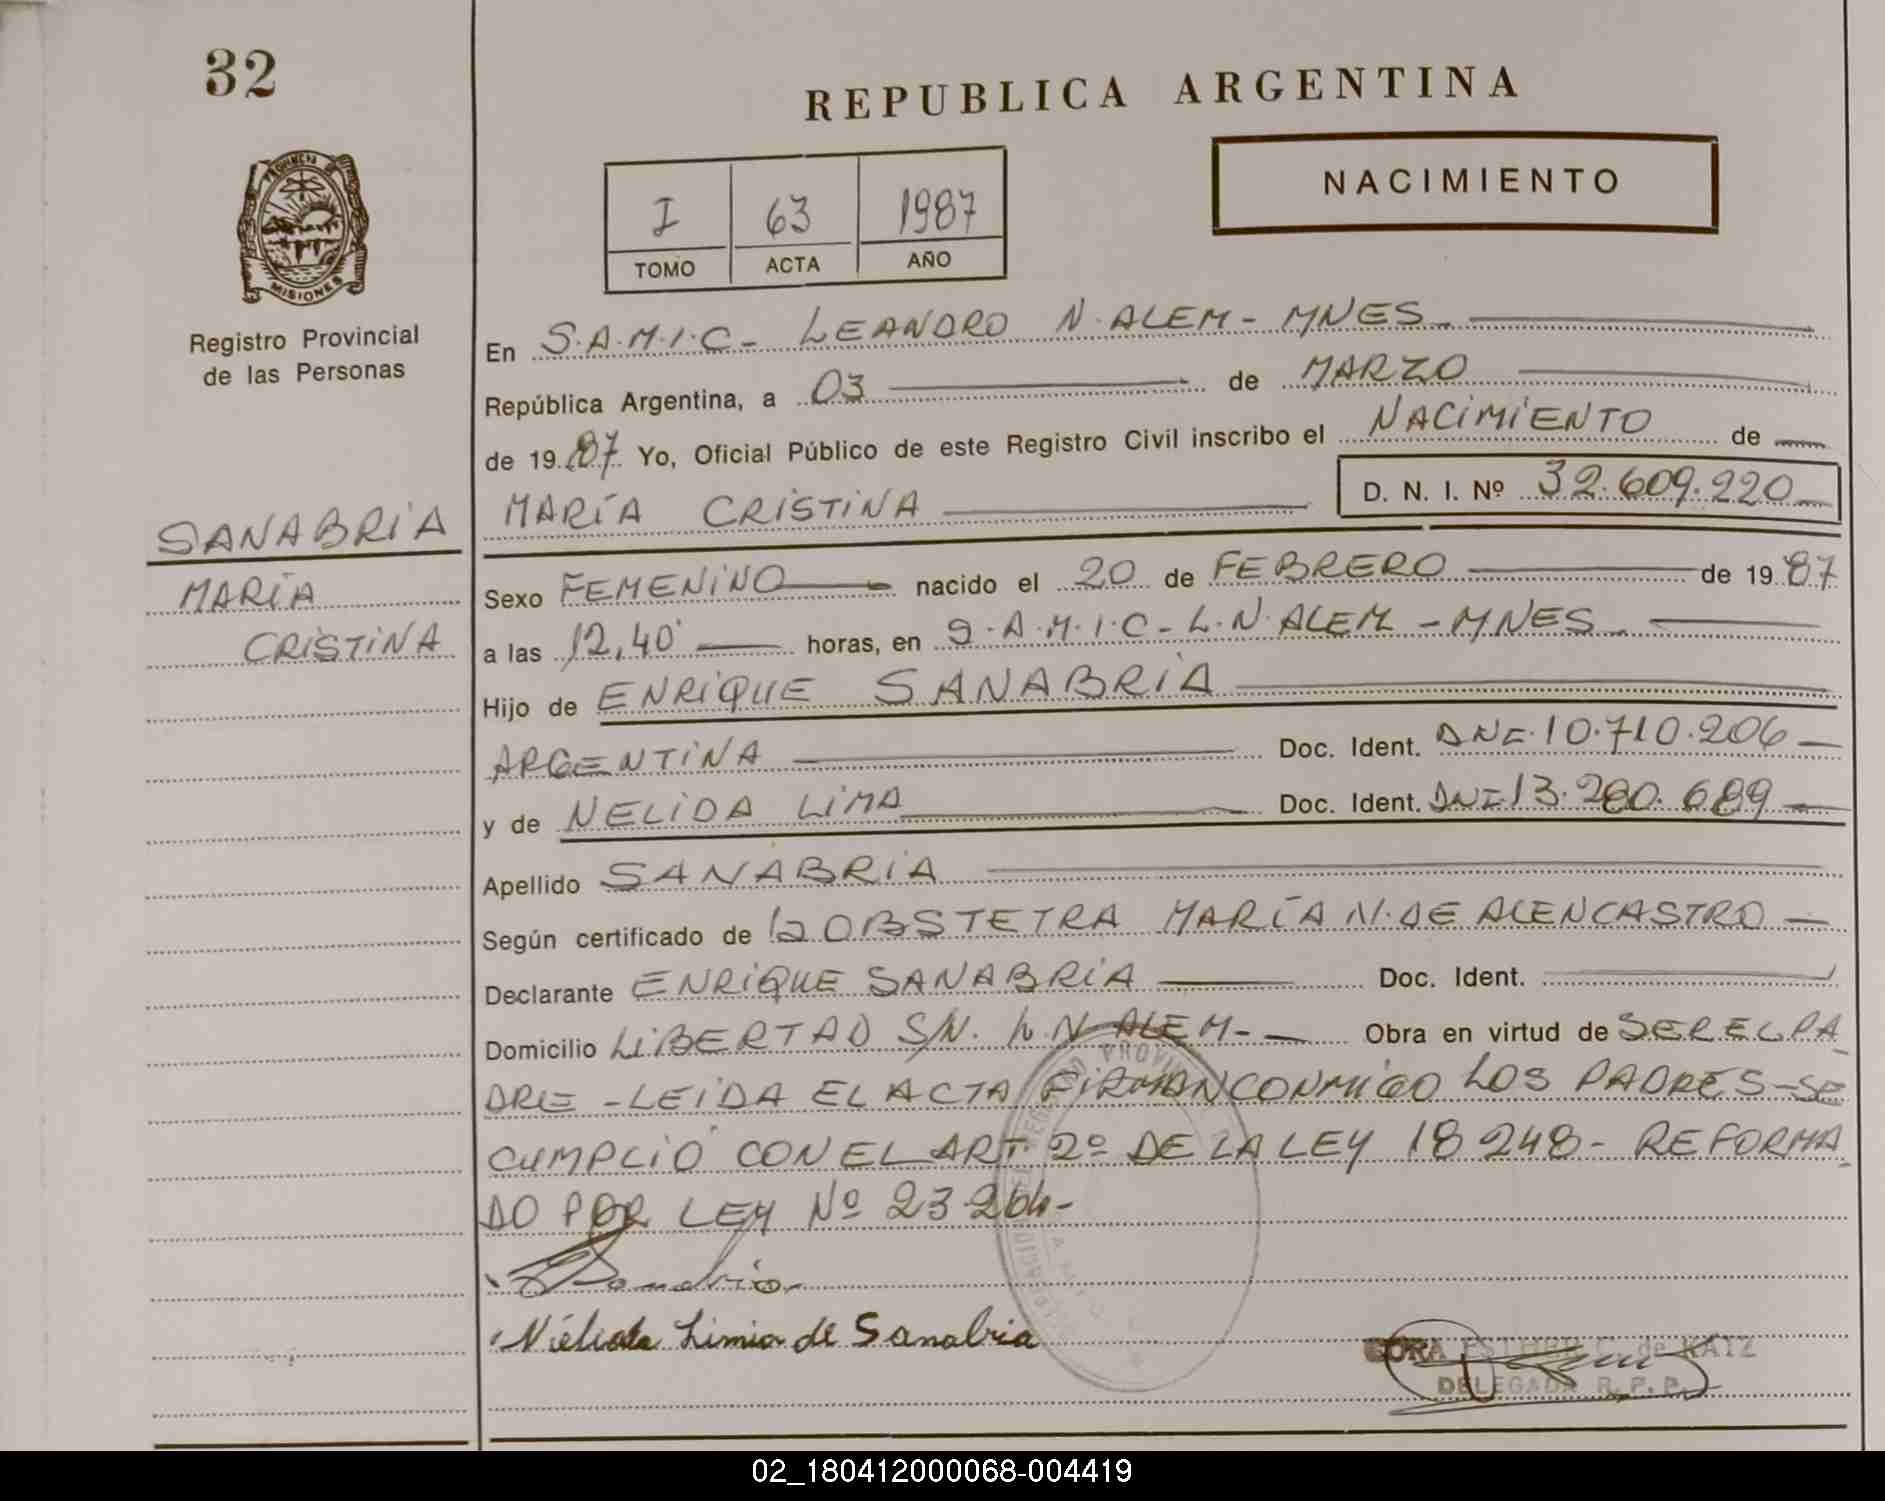 32
REPUBLICA ARGENTINA
NACIMIENTO
PROVINCIA DE
MISIONES
I 63 1987
TOMO ACTA AÑO
Registro Provincial
de las Personas
En S.A.M.I.C- LEANDRO N. ALEM - MNES
República Argentina, a 03 de MARZO
de 1987 Yo, Oficial Público de este Registro Civil inscribo el NACIMIENTO de
D. N. I. Nº 32.609.220
SANABRIA
MARÍA CRISTINA
MARÍA
CRISTINA
Sexo FEMENINO nacido el 20 de FEBRERO de 1987
a las 12,40' horas, en S.A.M.I.C- L.N. ALEM - MNES
Hijo de ENRIQUE SANABRIA
ARGENTINA Doc. Ident. DNI. 10.710.206
y de NELIDA LIMA Doc. Ident. DNI. 13.280.689
Apellido SANABRIA
Según certificado de la OBSTETRA MARÍA N. DE ALENCASTRO
Declarante ENRIQUE SANABRIA Doc. Ident.
Domicilio LIBERTAD S/N. L.N ALEM- Obra en virtud de SER EL PA
DRE - LEIDA EL ACTA FIRMAN CONMIGO LOS PADRES - SE
CUMPLIÓ CON EL ART. 2º DE LA LEY 18248 - REFORMA
DO POR LEY Nº 23.264-
Sanabria
Nélida Lima de Sanabria
DORA ESTHER C. de KATZ
DELEGADA R. P. P.
02_180412000068-004419